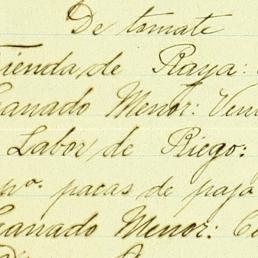 De tomate
Tienda de Raya:
Ganado Menor: Ven
Labor de Riego:
pº. pacas de paja
Ganado Menor: Ce